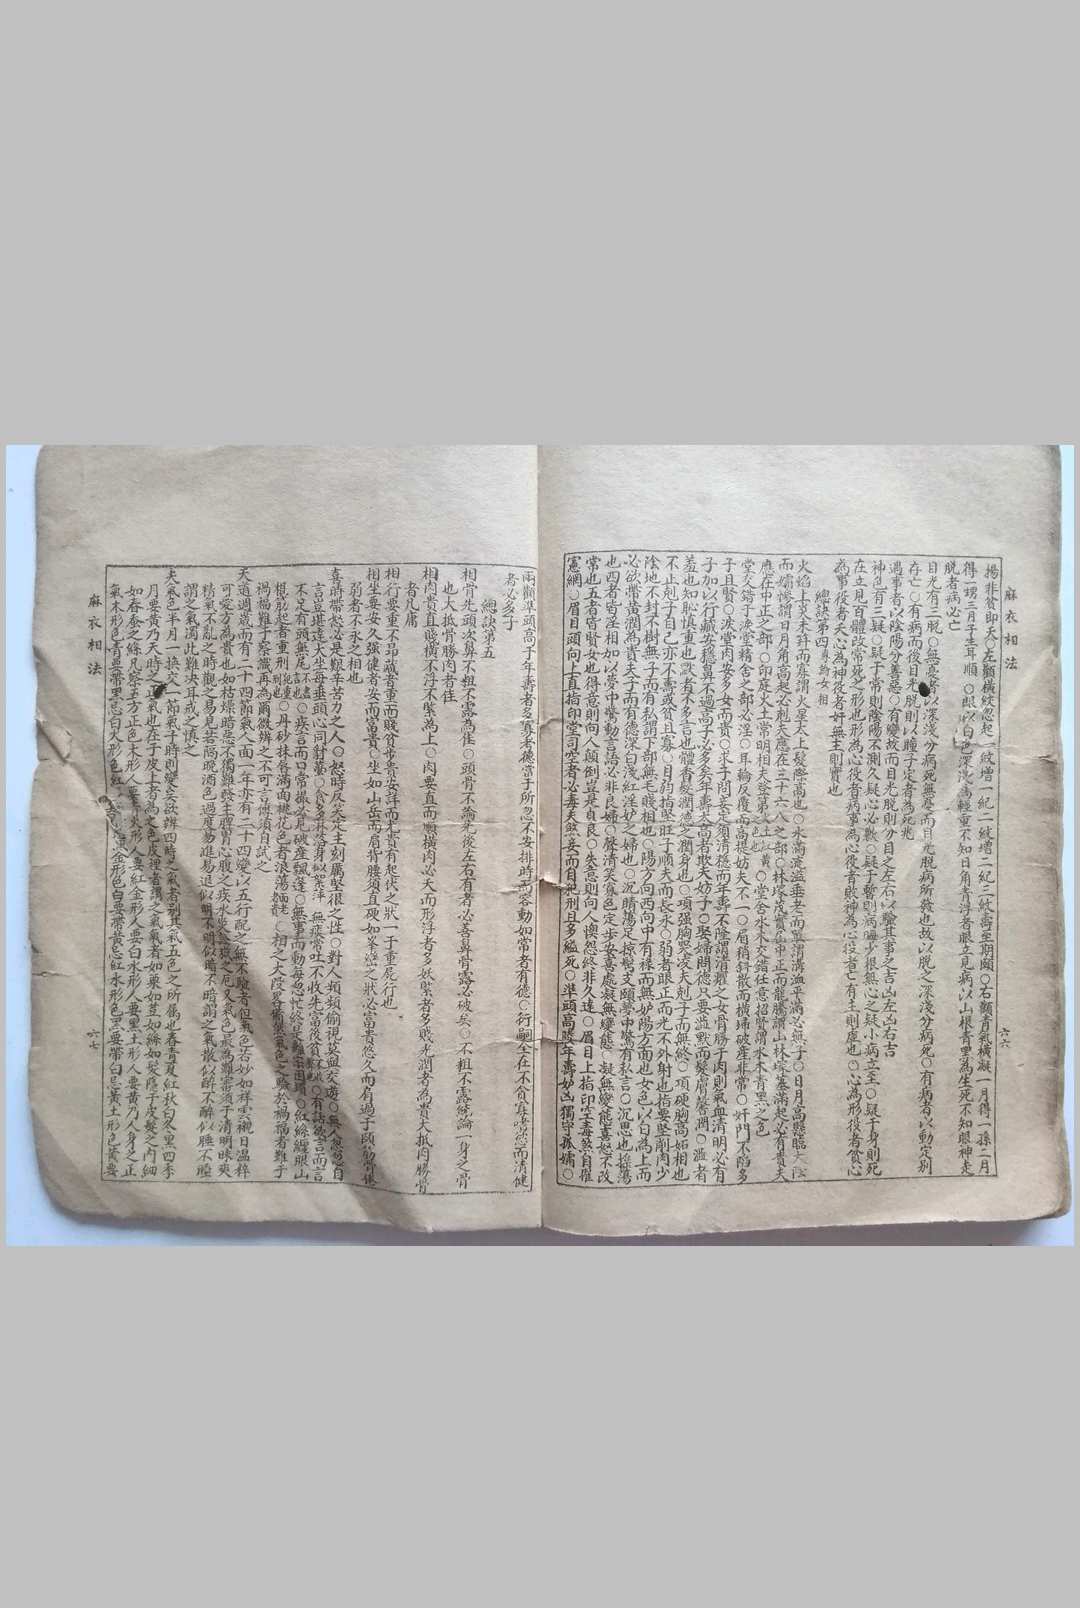 麻衣相法
六六
揚非貧即夭○左顴橫紋忽起一紋增一紀二紋增二紀三紋壽至期頤○右顴青氣橫凝一月得一孫二月
得二甥三月子生耳順○眼以白色深淺為輕重不知日角青浮者眼立見病以山根青黑為生死不知眼神走
脫者病必亡
目光有三脫○無憂者以深淺分病死無憂而目光脫病所發也故以脫之深淺分病死○有病者以動定別
存亡○有病而後目光脫則以瞳子定者為死兆
遇事者以陰陽分善惡○有變故而目光脫則分目之左右以驗其事之吉凶左凶右吉
神色有三疑○疑于常則陰陽不測久疑心必數○疑于暫則病藴少根無心之疑小病立至○疑于身則死
在立見百體改常死之形也形為心役者病事為心役者敗神為心役者亡有主則虛也○心為形役者貧心
為事役者夭心為神役者奸無主則實也
總訣第四專為女相
火焰上炎未笄而寡謂火星太上髮際高也○水滿流溢垂老而單謂溝洫平滿必無子○日月高懸臨大陰
而孀慘謂日月角高起必剋夫應在三十六八之部○林塚茂實岳中正而龍騰謂山林塚墓滿起必有貴夫
應在中正之部○印庭火土常明相夫登第火土紅黃之色也○堂舍水木交錯任意招賢謂水木青黑之色
堂交錯于淚堂精舍之部必淫○耳輪反覆而高提妨夫不一○眉稍斜散而橫掃破產非常○奸門不陷多
子且賢○淚堂肉安多女而貴○求子問妾定須清穩而年壽不隆謂清癯之女骨勝于肉則氣血清明必有
子加以行藏安穩鼻不過高子必多矣年壽太高者欺夫妨子○娶婦問德只要溫默而髮膚馨潤○溫者
羞也知恥慎重也默者不多言也體香髮潤德之潤身也○項强胸突凌夫剋子而無終○項硬胸高妬相也
不止剋子自己亦不壽或貧且寡○目韵指堅旺子順夫而長永○弱者眼正而光不外射也指要堅削肉少
陰地不封不樹無子而有私謂下部無毛賤相也○陽方向西向中有祿而無妒陽方面也女色以白為上而
必欲帶黃潤為貴夫子而有德深白淺紅淫妒之婦也○沉睛蕩足掠鬢支頤夢中驚有私言○沉思也搖蕩
也四者皆淫相如以夢中驚動言語必非良婦○聲清笑寡色定步安萬處凝無變態○凝無變態喜怒不改
常也五者皆賢女也得意則向人顛倒豈是貞良○失意則向人懊怨終非久達○眉目上指印空毒煞自罹
憲網○眉目頭向上直指印堂司空者必毒夫煞妾而自犯刑且多縊死○準頭高勝年壽妒凶獨守孤孀○
兩顴準頭高于年壽者多寡者德當于所忽不安排時而容動如常者有德○衍嗣全在不貪寡嗜慾而清健
者必多子
總訣第五
相骨先頭次鼻不粗不露為佳○頭骨不論先後左右有者必善鼻骨露必破矣○不粗不露統論一身之骨
也大抵骨勝肉者佳
相肉貴直賤橫不浮不緊為上○肉要直而順橫肉必夭而形浮者多妖緊者多賤光潤者為貴大抵肉勝骨
者凡庸
相行要重不昂藏者重而賤貧步貴安詳而尤貴有起伏之狀一于重屍行也
相坐要安久强健者安而富貴○坐如山岳而肩背腰須直硬如峯巒之狀必富貴愈久而肩過于頤筋骨俱
弱者不永之相也
喜時帶愁必是艱辛苦力之人○怒時反笑定主刻厲堅狠之性○對人頻頻偷視莫與交遊○無人忽忽自
言豈堪達大坐每垂頭心同豺蠆○食多狀落身似絮萍 無痰常吐不收先富後貧○有話欲言而言
不足有頭無尾言不盡○疾言而口常撮必見破產飄蓬○無事而動每忽忙終是離宗困頓○紅絲纏眼山
根筋起者重刑犯重刑也○丹砂抹唇滿面桃花色者浪蕩○相之大段畧備氣色之驗於禍福者難于
禍福難于察識再為爾微辨之不可言傳須自試之
天道週歲而有二十四節氣人面一年亦有二十四變以五行配之無不驗者但氣色若妙如祥雲襯日溫粹
可愛方為貴也如枯燥暗惡不獨難發主脾胃心腹之疾水災盜獄之厄又氣色最為難審須于清明昧爽
精氣不亂之時觀之易見若隔晚酒色過度易進易退似明不明似暗不暗謂之氣散似醉不醉似睡不睡
謂之氣濁此難決耳戒之慎之
夫氣色半月一換交一節氣子時則變矣欲辨四時之氣者別其氣五色之所屬也春青夏紅秋白冬黑四季
月要黃乃天時之正氣也在于皮上者為之色皮裡者謂之氣氣者如粟如荳如絲如髮隱于皮髮之內細
如春蠶之絲凡察五方正色木形人要青火形人要紅金形人要白水形人要黑土形人要黃乃人身之正
氣木形色青要帶黑忌白火形色紅 金形色白要帶黃忌紅水形色黑要帶白忌黃土形色黃要
麻衣相法
六七